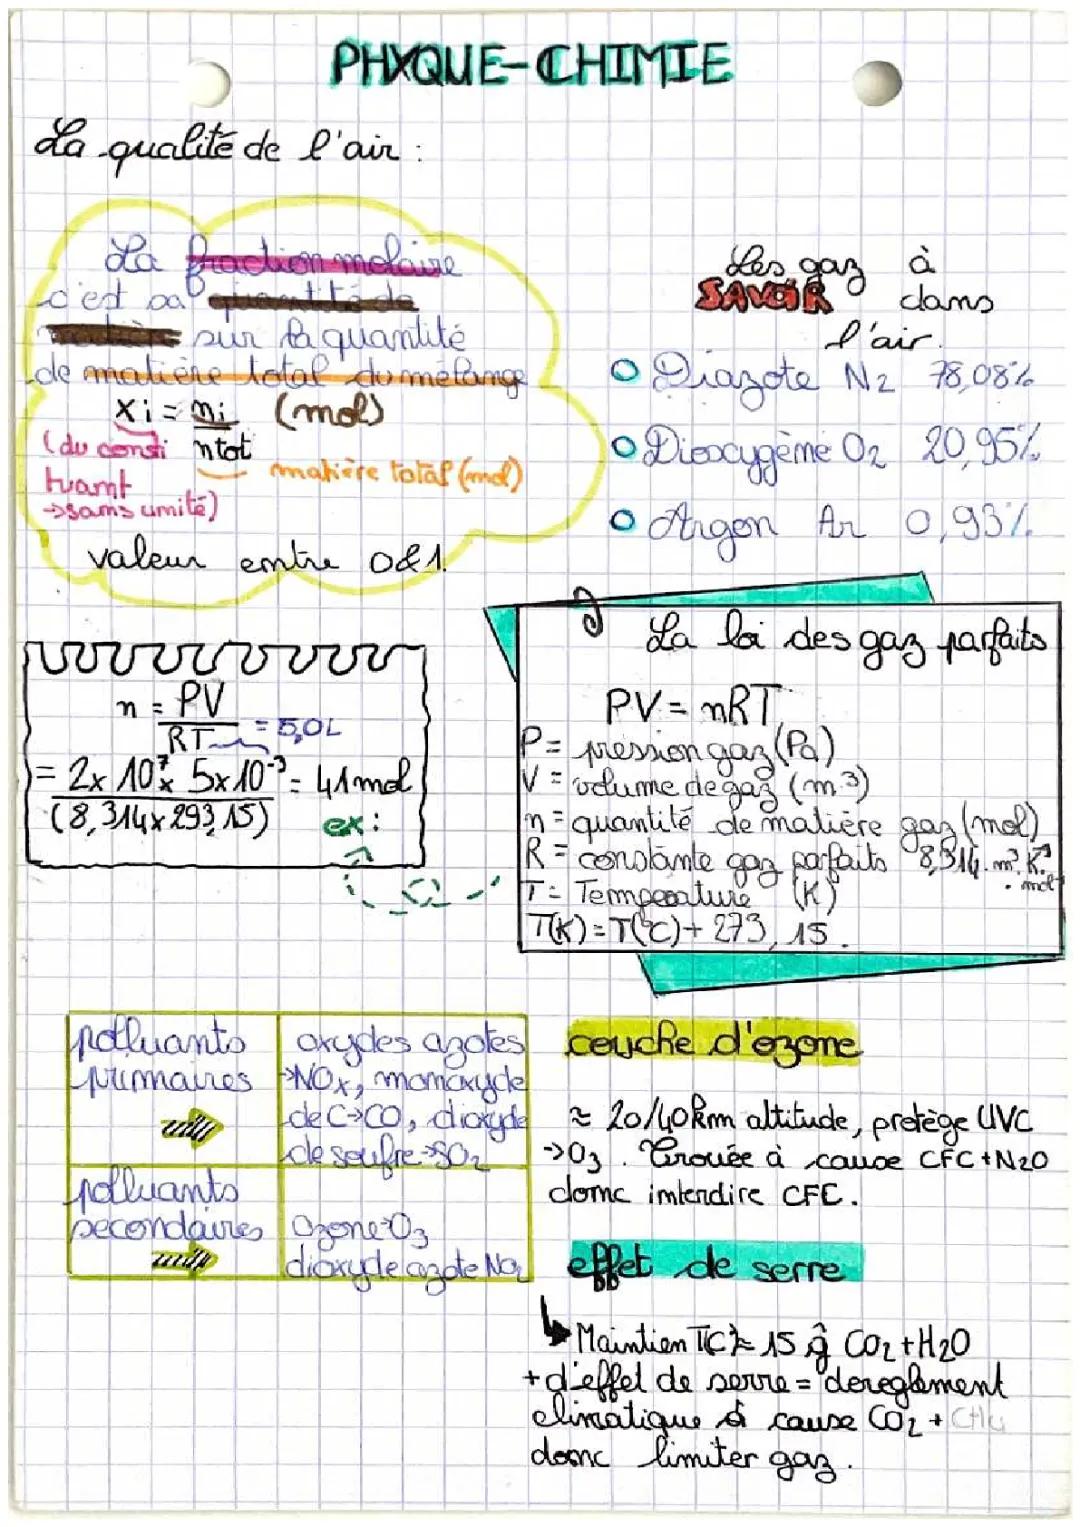 PHXQUE-CHIMIE
La qualité de l'air :
La fraction molaire
c'est sa quantité de
matière sur la quantité
de matière total du mélange
Xi = ni (mols)
ntot
(du consti
tuant
→sans unité)
matière total (mol)
valeur entre 0&1.
Les gaz à
SAVOIR dans
l'air.
Diazote N2 78,08%
Dioxygène O2 20,95%
Argon Ar 0,93%
n = PV
RT = 5,0L
= 2x 10⁷x 5x10⁻³ = 41mol
(8,314x293,15)
ex:
La loi des gaz parfaits
PV = nRT
P = pression gaz (Pa)
V = volume de gaz (m³)
n = quantité de matière gaz (mol)
R = constante gaz parfaits 8,314. m³.K⁻¹
. mol
T = Température (K)
T(K) = T(°C) + 273,15.
polluants
primaires
oxydes azotes
→NOx, monoxyde
de C→CO, dioxyde
de soufre→SO2
polluants
secondaires
Ozone→O3
dioxyde azote NO2
couche d'ozone
≈ 20/40km altitude, protège UVC
→O3. Trouée à cause CFC+N2O
donc interdire CFC.
effet de serre
Maintien T(C) ≈ 15 CO2+H2O
+ d'effet de serre = dereglement
climatique à cause CO2 + CH4
donc limiter gaz.